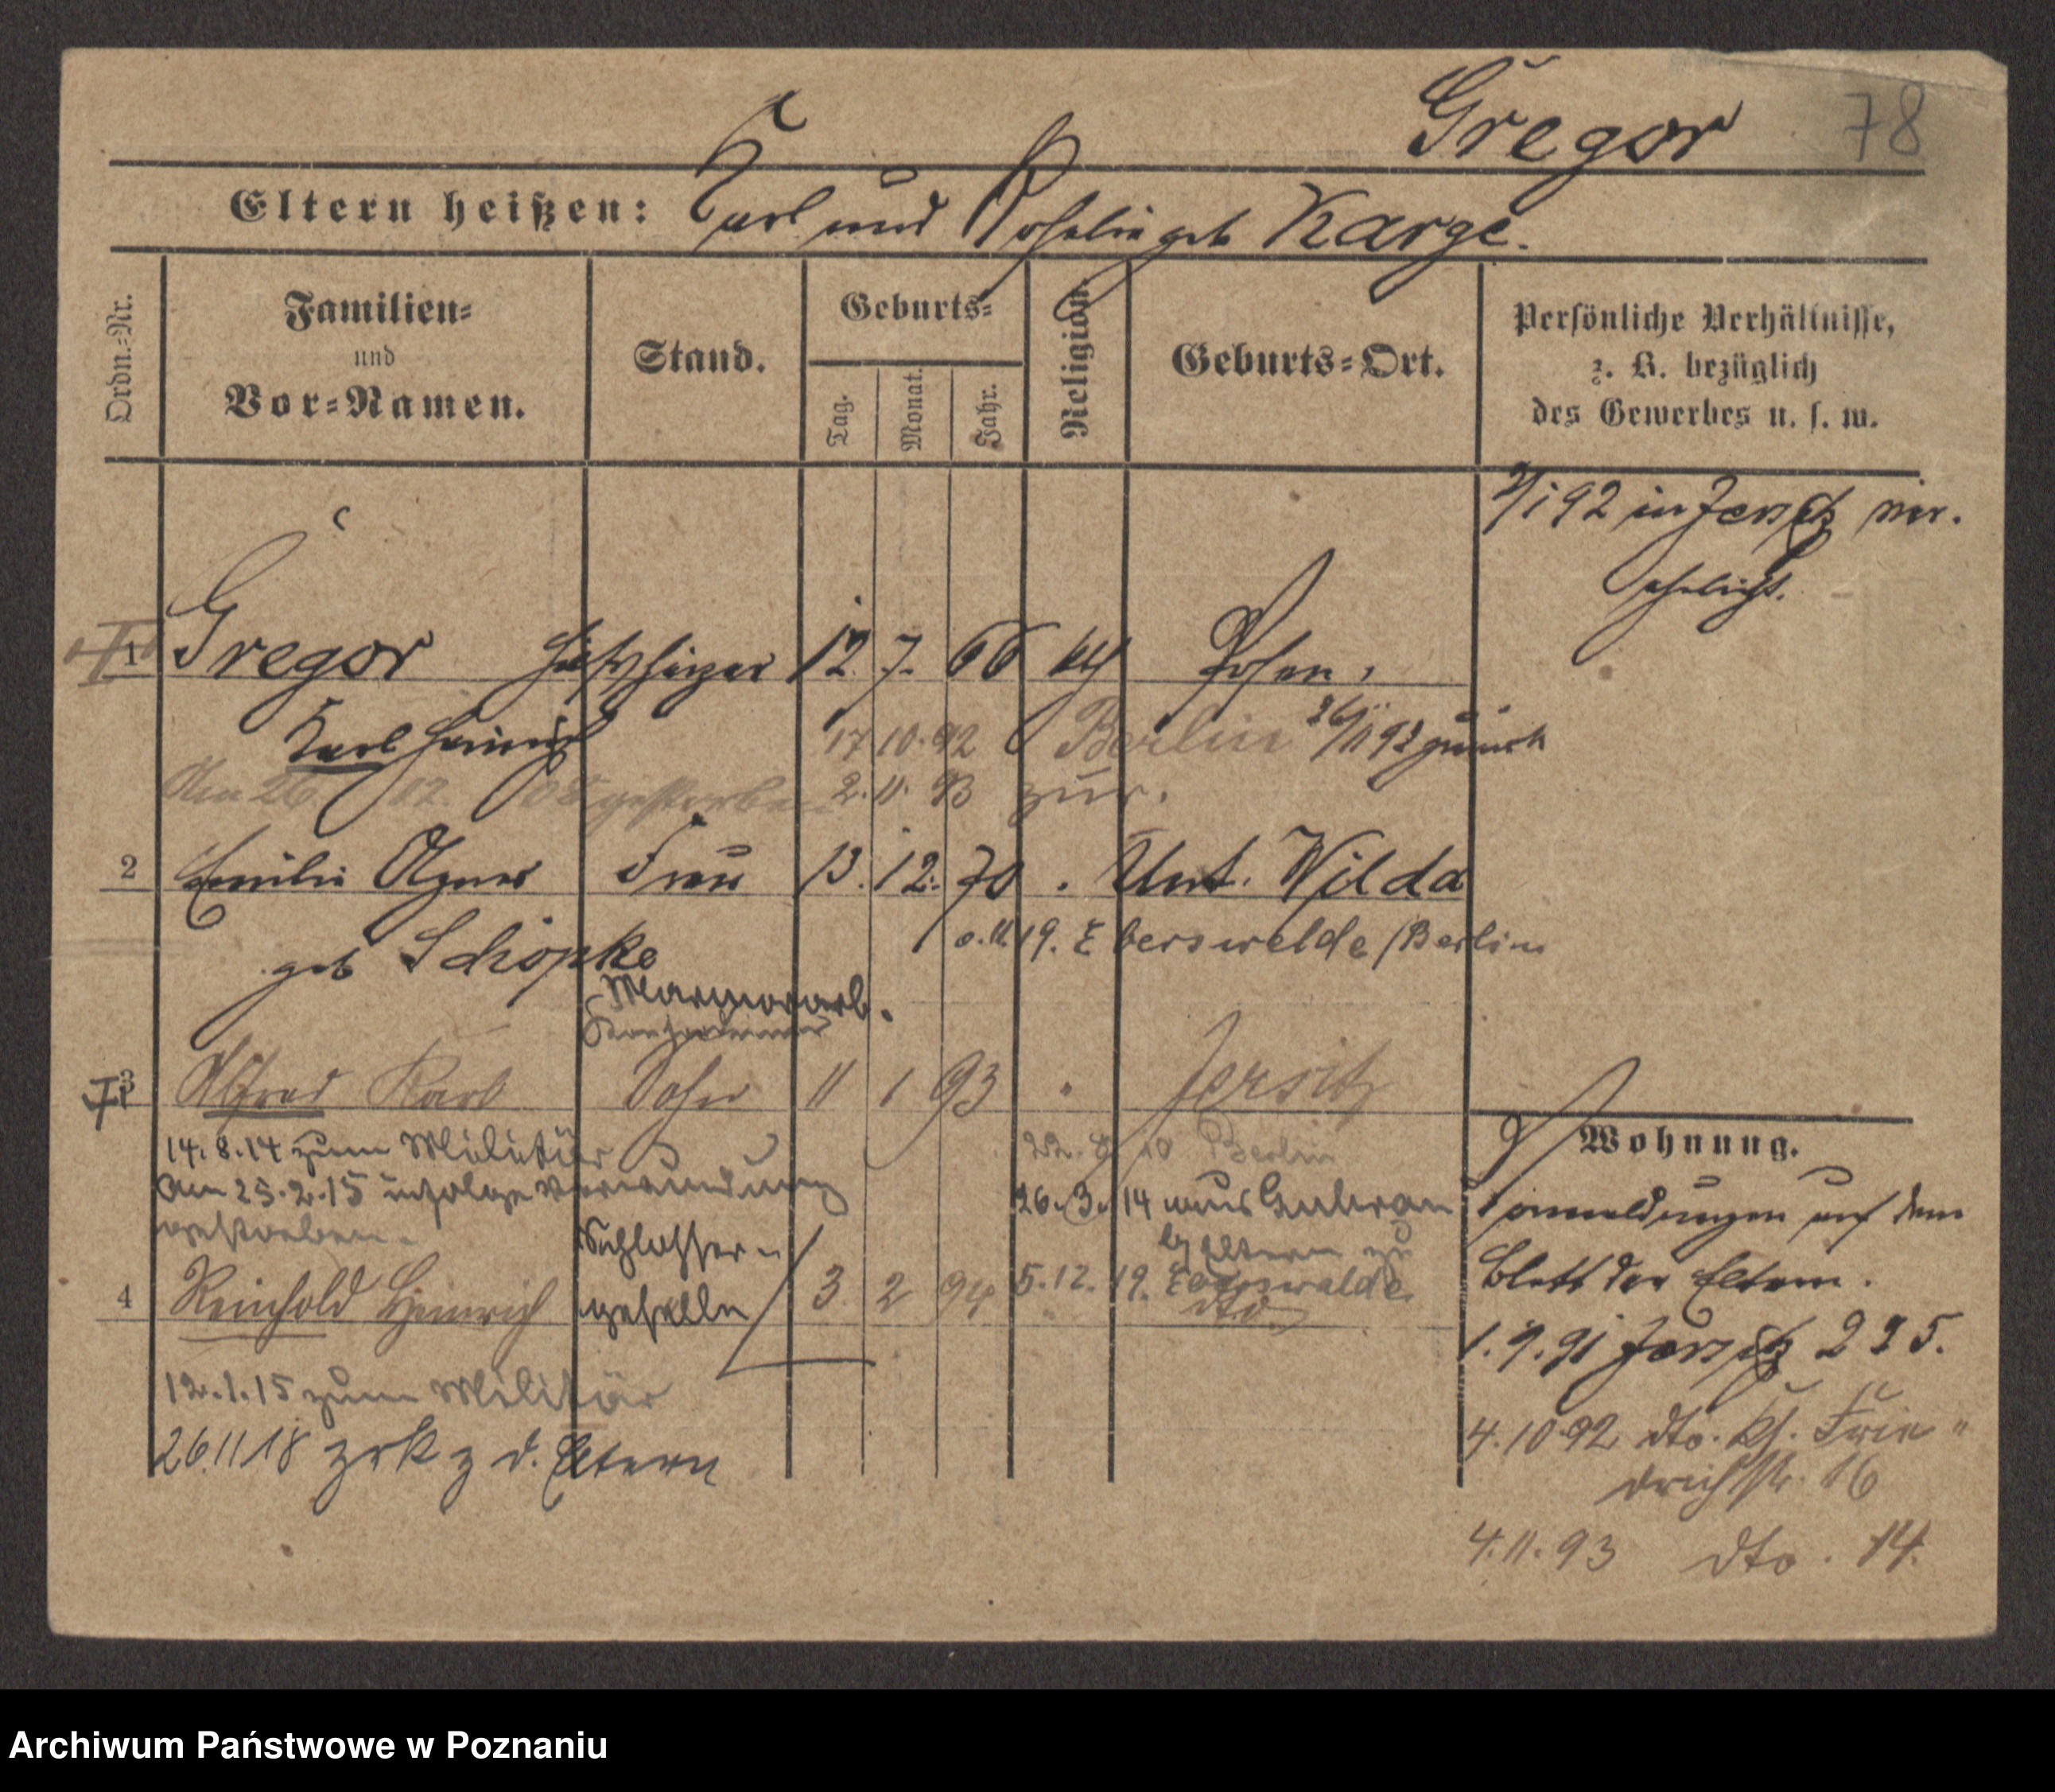 Gregor 78
Eltern heißen: Karl und Rosalie geb Karge.
Ordn.-Nr.
Familien-
und
Vor-Namen.
Stand.
Geburts-
Tag.
Monat.
Jahr.
Religion.
Geburts-Ort.
Persönliche Verhältnisse,
z. B. bezüglich
des Gewerbes u. s. w.
92 in Jersitz ver.
ehelicht.
1 Gregor 12 7. 66 Posen,
Karl Heinrich 17 10. 92 Berlin 26/11 92 zurück
Am 26. 12. 08 gestorben 2. 11. 93 zur.
2 Emilie Agnes Frau 13. 12. 70 Unt. Wilda
geb Schöpke 19. Eberswelde/Berlin
Marmorarb.
3 Alfred Karl Sohn 11 1 93 " Jersitz
14.8.14 zum Militär
22. 8 10 Berlin
Am 25.2.15 infolge Verwundung
gestorben.
26.3.14 aus Guhrau
z. Eltern zu
Schlosser-
geselle
4 Reinhold Heinrich 3 2 94 " dto
5.12.19. Eberswalde
12.1.15 zum Militär
26.11 18 zrk z d. Eltern
Wohnung.
anmeldungen auf dem
Blatt der Eltern.
1. 9. 91 Jersitz 225.
4.10 92 dto. Kl. Frie"
drichstr. 16
4.11.93 dto. 14.
Archiwum Państwowe w Poznaniu